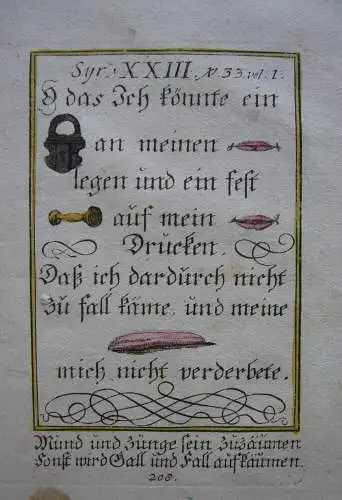 Syr. XXIII, V. 33. vol. 1.
O das Ich könnte ein
an meinen
legen und ein fest
auf mein
Drucken.
Daß ich dardurch nicht
Zu fall käme, und meine
mich nicht verderbete.
Mund und Zünge sein Zuzäumen
Sonst wird Gall und Fall aufkäumen.
208.